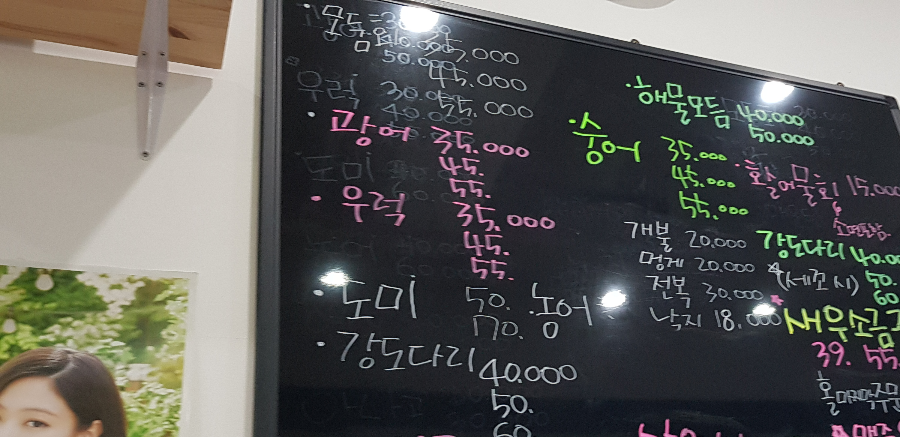 ·모듬 35.000
45.000
55.000
·광어 35.000
45.
55.
·우럭 35.000
45.
55.
·도미 50. ·농어
70.
·강도다리 40.000
50.
60
·해물모듬 40.000
50.000
·숭어 35.000
45.000
55.000
·활어물회 15.000
소면포함.
개불 20.000
멍게 20.000
전복 30.000
낙지 18.000
강도다리 40.00
(세꼬시) 50.
60
새우소금구
39. 55.